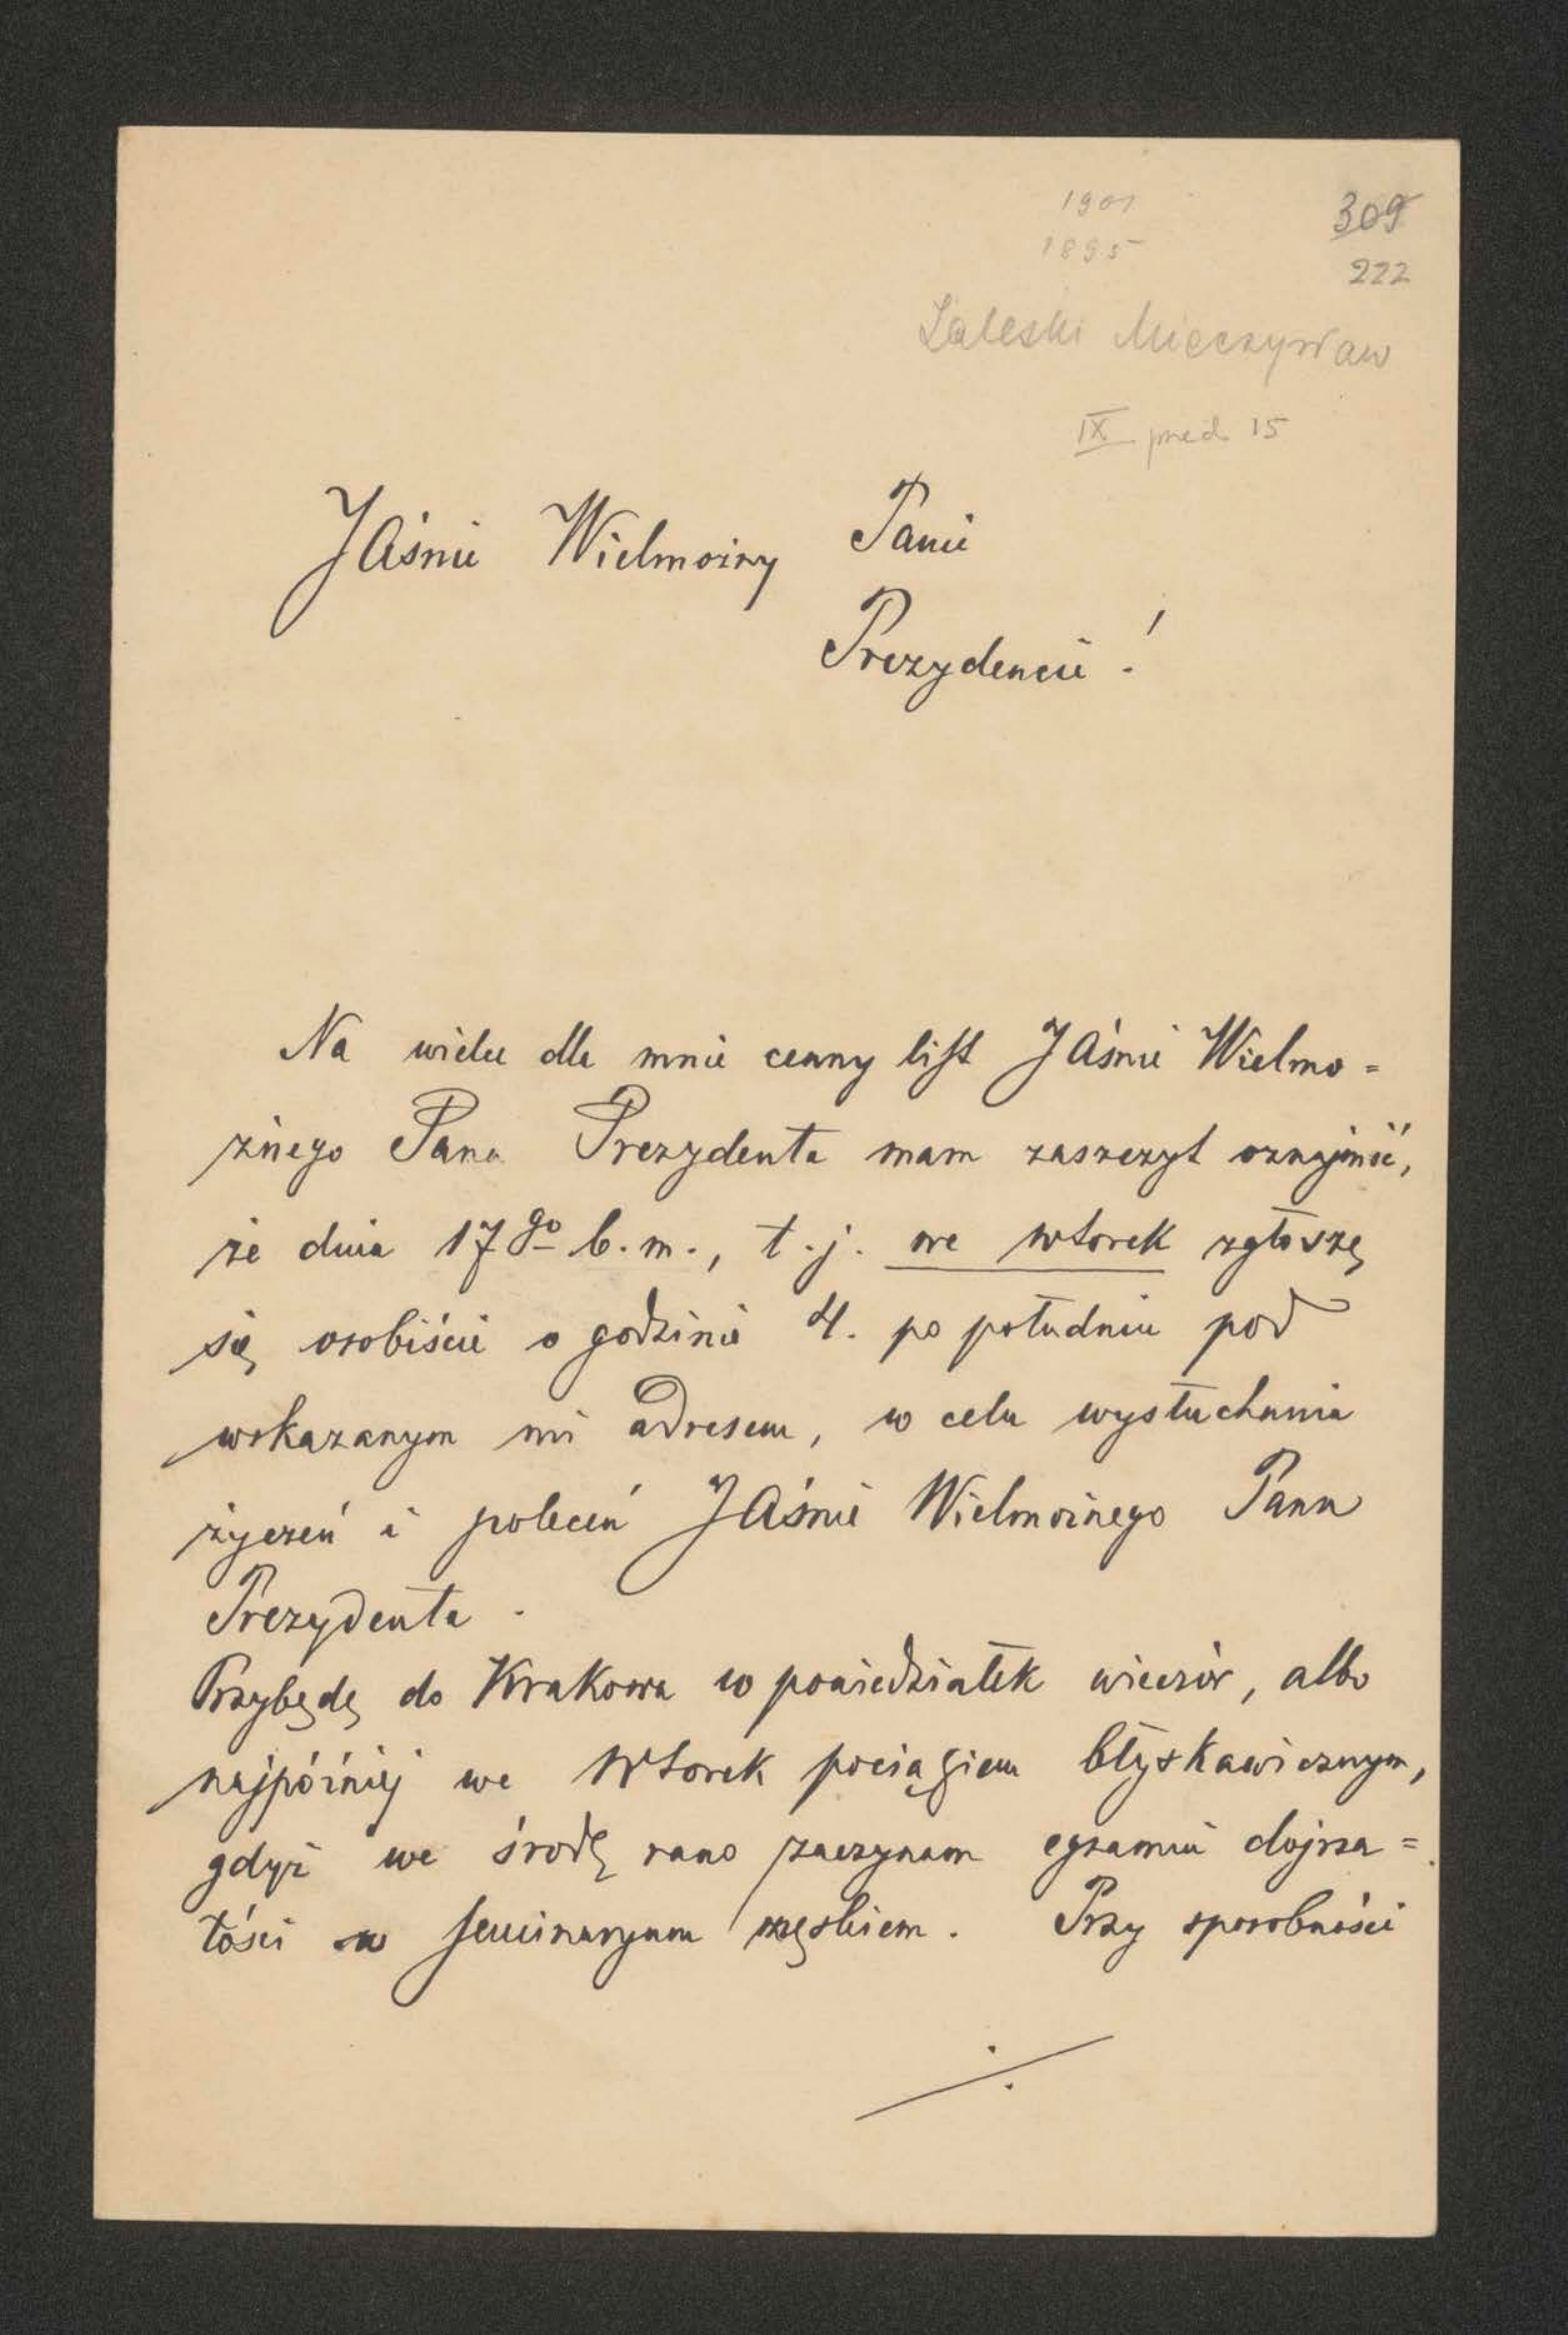 1901
309
1895
222
Zaleski Mieczysław
IX przed 15
JAśnie Wielmożny Panie
Prezydencie!
Na wielce dla mnie cenny list JAśnie Wielmo=
żnego Pana Prezydenta mam zaszczyt oznajmić,
że dnia 17go b.m., t.j. we wtorek zgłoszę
się osobiście o godzinie 4. po południu pod
wskazanym mi adresem, w celu wysłuchania
życzeń i poleceń JAśnie Wielmożnego Pana
Prezydenta.
Przybędę do Krakowa w poniedziałek wieczór, albo
najpóźniej we wtorek pociągiem błyskawicznym,
gdyż we środę rano zaczynam egzamin dojrza=
łości w seminaryum męskiem. Przy sposobności
./.